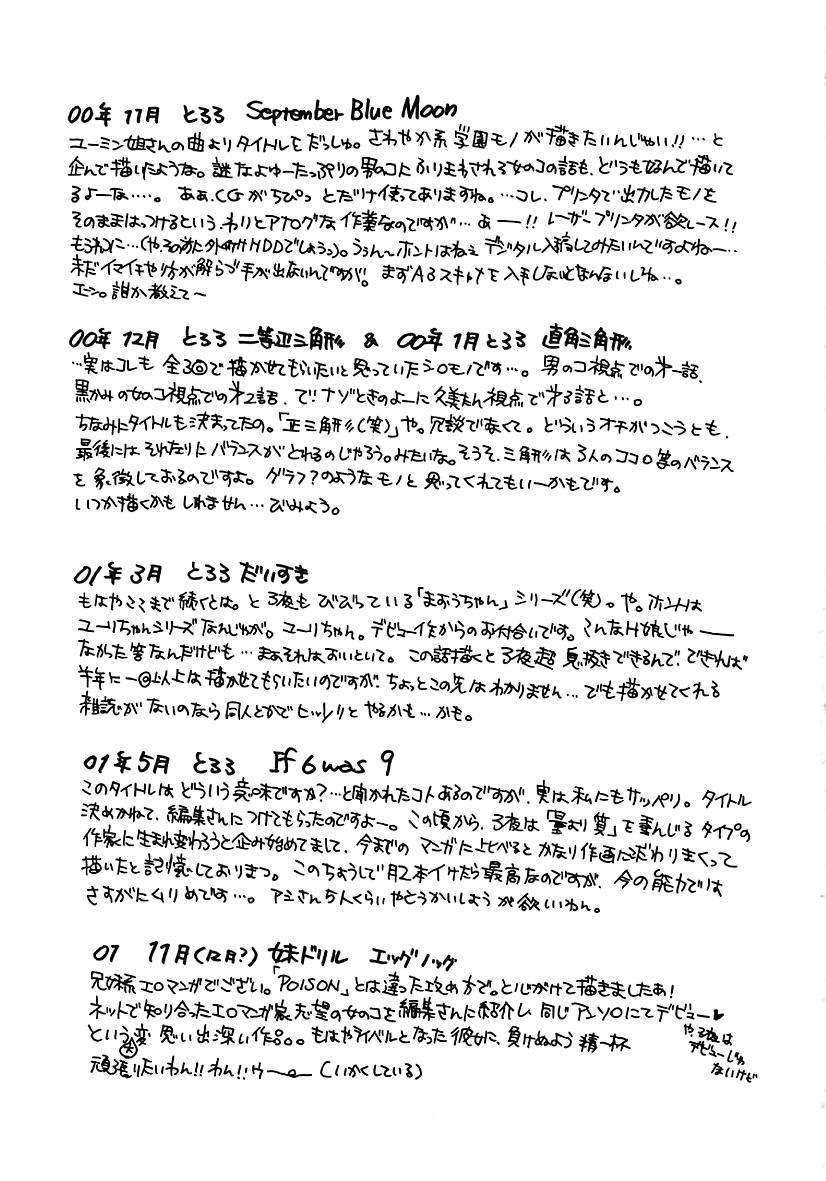 00年11月 とろろ September Blue Moon
ユーミン姐さんの曲よりタイトルをだっしゅ。さわやか系学園モノが描きたいんじゃい!!…と
企んで描いたような。謎なよゆーたっぷりの男のコにふりまわされる女のコの話も、どうも好んで描いて
るよーな…。 ああ、CGがちぴっとだけ使ってありますね。…コレ、プリンタで出力したモノを
そのままはっつけるという、わりとアナログな作業なのですが…あ――!!レーザープリンタが欲しース!!
もろもろに…(や、その前に外付けHDDでしょうっ)。うぅん〜ホントはねぇデジタル入稿してみたいんですよね〜…
未だイマイチやり方が解らづ手が出ないんですが。まずA3スキャナを入手しないとなんないしね…。
エーン。誰か教えて〜
00年12月 とろろ 二等辺三角形 & 00年1月とろろ 直角三角形
…実はコレも 全3回で描かせてもらいたいと思っていたシロモノです…。男のコ視点での第一話、
黒かみの女のコ視点での第2話、で!ナゾときのよーに久美たん視点で第3話と…。
ちなみにタイトルも決まってたの。「正三角形(笑)」や。冗談でなくて。どういうオチがつこうとも、
最後にはそれなりにバランスがとれるのじゃろう。みたいな。そうそ、三角形は3人のココロ等のバランス
を象徴しておるのですよ。グラフ?のようなモノと思ってくれてもいーかもです。
いつか描くかもしれません…びみょう。
01年3月 とろろ だいすき
もはやここまで続くとは。と子夜もびびっている「まおうちゃん」シリーズ(笑)。や。ホントは
ユーリちゃんシリーズなんじゃが。ユーリちゃん。デビュー作からのお付合いです。こんなH娘じゃ――
なかった筈なんだけども…まぁそれはおいといて。この話描くと子夜超息抜きできるんで、できれば
半年に一回以上は描かせてもらいたいのですが、ちょっとこの先はわかりません…でも描かせてくれる
雑誌がないのなら同人とかでヒッソリとやるかも…かも。
01年5月 とろろ If 6 was 9
このタイトルはどういう意味ですか?…と聞かれたコトあるのですが、実は私にもサッパリ。タイトル
決めかねて、編集さんにつけてもらったのですよー。この頃から、子夜は「量より質」を重んじるタイプの
作家に生まれ変わろうと企み始めてまして、今までのマンガに比べるとかなり作画にこだわりまくって
描いたと記憶しておりまつ。このちょうしで月2本イけたら最高なのですが、今の能力では
さすがにムリめです…。アシさん5人くらいやとうかいしょうが欲いわん。
01 11月(12月?)妹ドリル エッグノッグ
兄妹系エロマンガでござい。「POISON」とは違った攻め方で。と心がけて描きましたぁ!
ネットで知り合ったエロマンガ家志望の女のコを編集さんに紹介し、同じアンソロにてデビュー♥
という大変思い出深い作品。もはやライバルとなった彼女に、負けぬよう精一杯
頑張りたいわん!!わん!!ウ〜 (いかくしている)
や、子夜は
デビューじゃ
ないけど